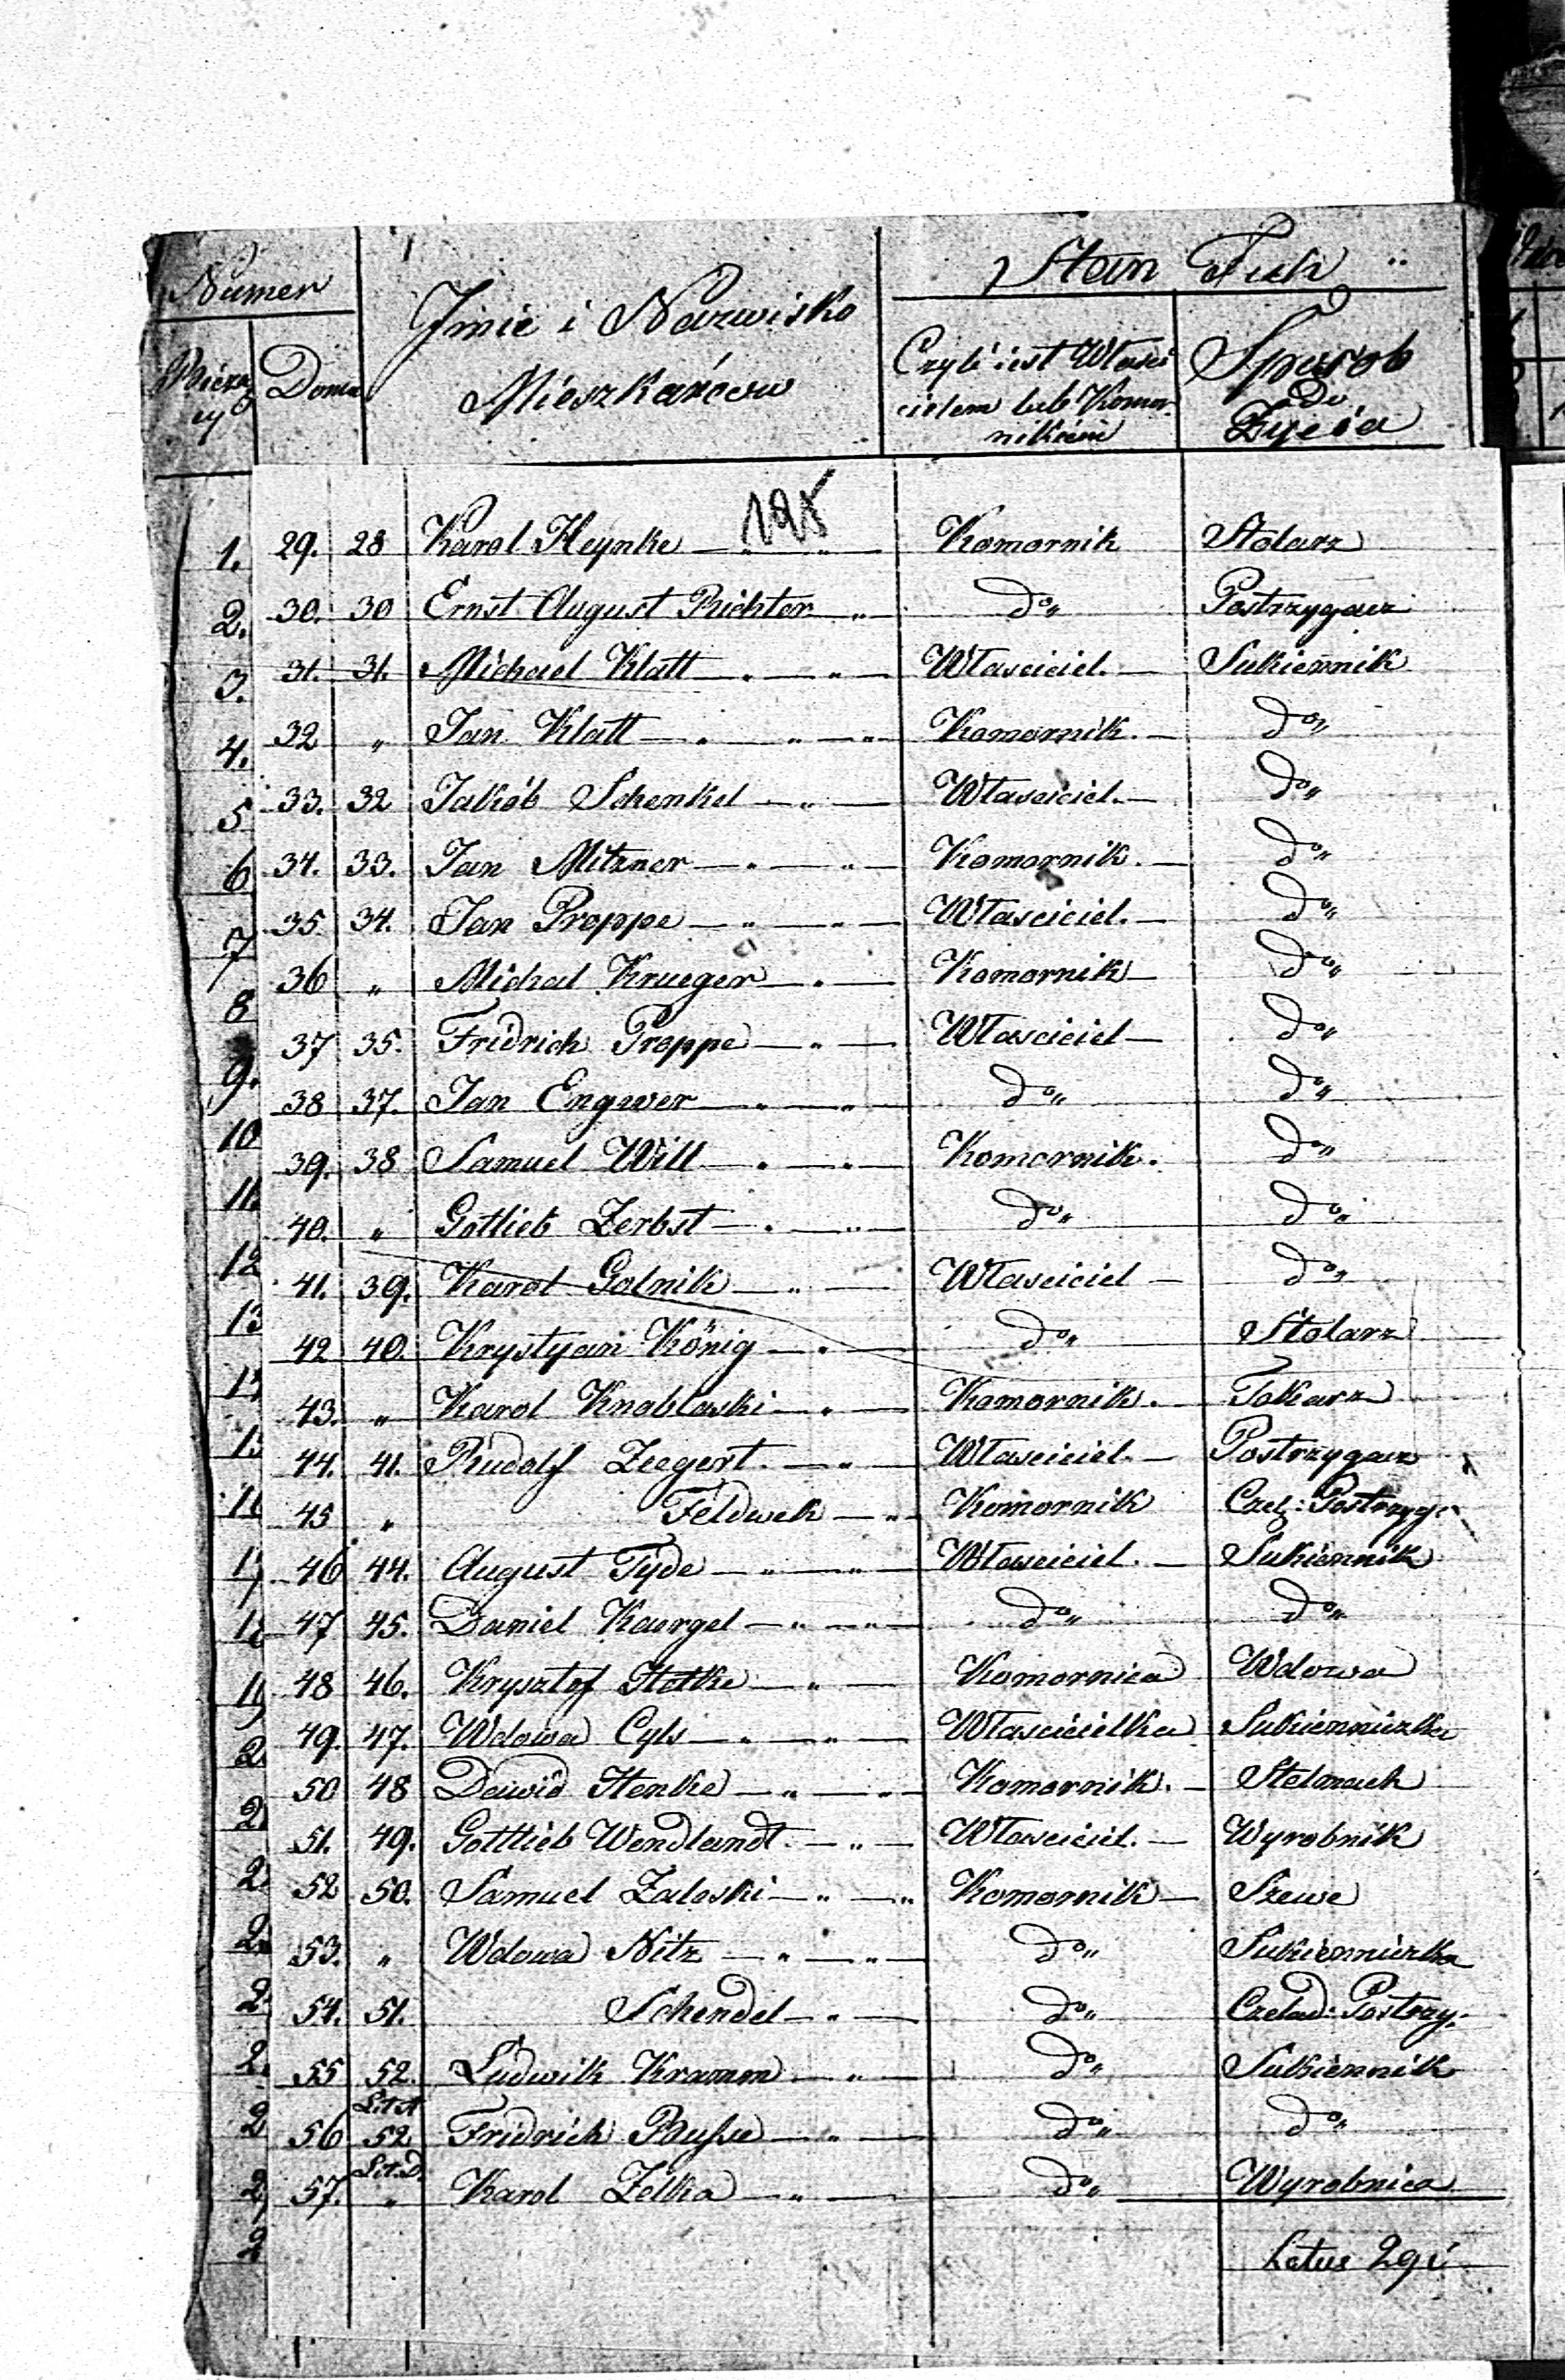 Numer
Jmie i Nazwisko
Mieszkańców
Stan Tich
Domu
Czyli iest Własci
cielem lub Komor-
nikiem
Sposob
do
Zycia
195
1. 29. 28 Karol Heynke Komornik Stolarz
2. 30. 30 Ernst August Richter do Postrzygacz
3. 31. 31. Michael Klatt Własciciel. Sukiennik
4. 32 " Jan Klatt Komornik. do
5 33. 32 Jakób Schenkel Własciciel. do
6 34. 33. Jan Mitzner Komornik. do
7 35 34. Jan Proppe Własciciel. do
8 36 " Michal Krueger Komornik do
9. 37 35. Fridrich Proppe Własciciel do
10 38 37. Jan Engwer do do
11. 39. 38 Samuel Will Komornik. do
12 40. " Gottlieb Zerbst do do
13 41. 39. Karol Golnik Własciciel do
42 40. Krystyan König do Stolarz
43. " Karol Knoblaski Komornik. Tokarz
44. 41. Rudolf Ziegert. Własciciel. Postrzygacz
45 " Feldwek Komornik Czel: Postrzyg:
46 44. August Tyde Własciciel. Sukiennik
47 45. Daniel Kaergel do do
48 46. Krysztof Hetke Komornica Wdowa
49. 47. Wdowa Cyls Włascicielka Sukienniczka
50 48 Dawid Henke Komornik. Stelmach
51. 49. Gottlieb Wendlandt Własciciel. Wyrobnik
52 50. Samuel Zaloski Komornik Szewc
53. " Wdowa Nitz do Sukienniczka
54. 51. Schendel do Czelad: Postrzy:
55 52. Ludwik Kramm do Sukiennik
Lit A
56 52 Fridrich Busse do do
Lit. D.
57. " Karol Zelka do Wyrobnica
Latus 29